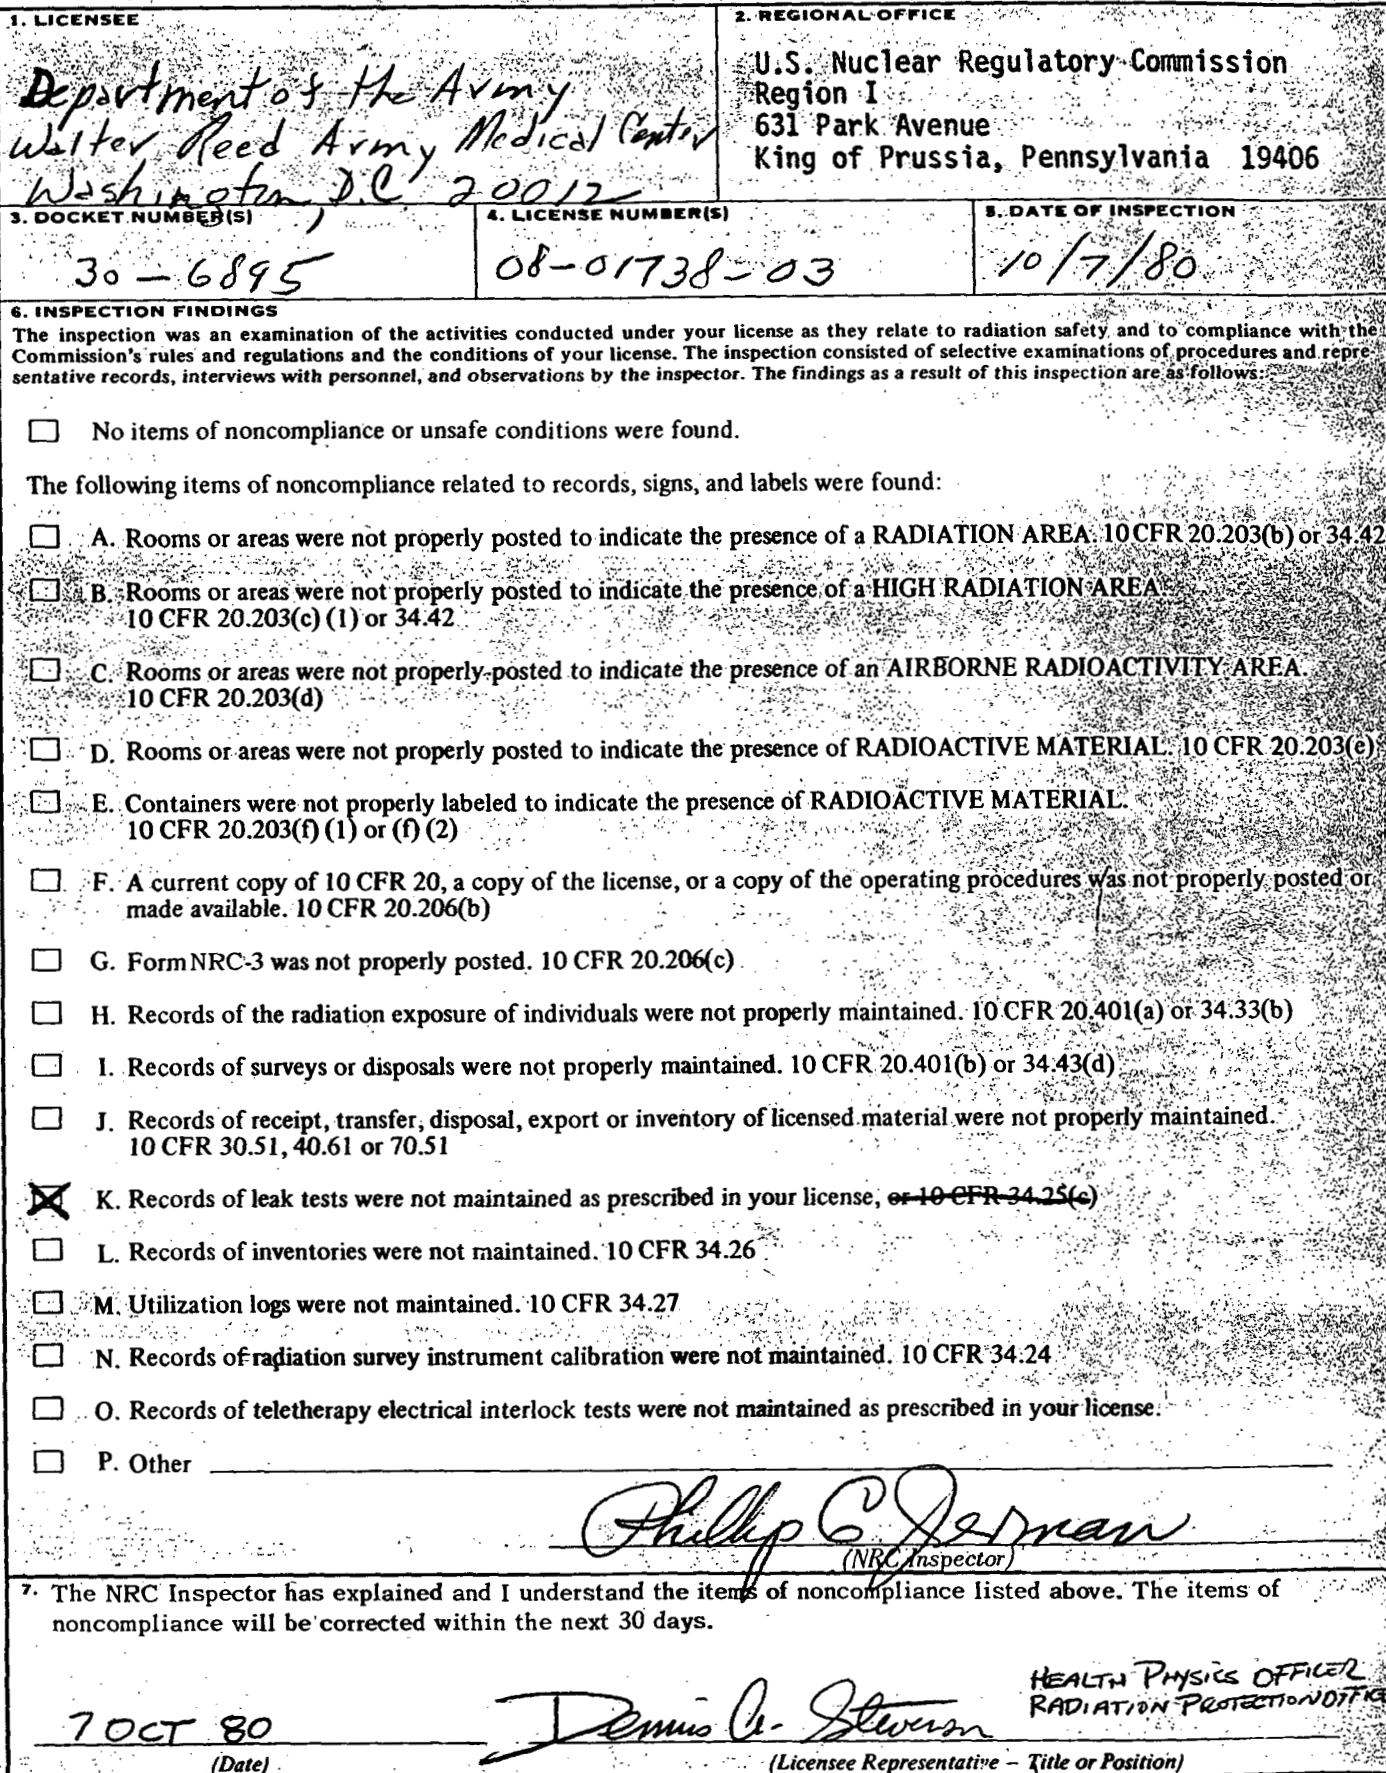 1. LICENSEE
Department of the Army
Walter Reed Army Medical Center
Washington, D.C. 20012
2. REGIONAL OFFICE
U.S. Nuclear Regulatory Commission
Region I
631 Park Avenue
King of Prussia, Pennsylvania 19406
3. DOCKET NUMBER(S)
30-6895
4. LICENSE NUMBER(S)
08-01738-03
5. DATE OF INSPECTION
10/7/80
6. INSPECTION FINDINGS
The inspection was an examination of the activities conducted under your license as they relate to radiation safety and to compliance with the
Commission's rules and regulations and the conditions of your license. The inspection consisted of selective examinations of procedures and repre-
sentative records, interviews with personnel, and observations by the inspector. The findings as a result of this inspection are as follows:
No items of noncompliance or unsafe conditions were found.
The following items of noncompliance related to records, signs, and labels were found:
A. Rooms or areas were not properly posted to indicate the presence of a RADIATION AREA. 10 CFR 20.203(b) or 34.42
B. Rooms or areas were not properly posted to indicate the presence of a HIGH RADIATION AREA.
10 CFR 20.203(c) (1) or 34.42
C. Rooms or areas were not properly posted to indicate the presence of an AIRBORNE RADIOACTIVITY AREA.
10 CFR 20.203(d)
D. Rooms or areas were not properly posted to indicate the presence of RADIOACTIVE MATERIAL. 10 CFR 20.203(e)
E. Containers were not properly labeled to indicate the presence of RADIOACTIVE MATERIAL.
10 CFR 20.203(f) (1) or (f) (2)
F. A current copy of 10 CFR 20, a copy of the license, or a copy of the operating procedures was not properly posted or
made available. 10 CFR 20.206(b)
G. Form NRC-3 was not properly posted. 10 CFR 20.206(c)
H. Records of the radiation exposure of individuals were not properly maintained. 10 CFR 20.401(a) or 34.33(b)
I. Records of surveys or disposals were not properly maintained. 10 CFR 20.401(b) or 34.43(d)
J. Records of receipt, transfer, disposal, export or inventory of licensed material were not properly maintained.
10 CFR 30.51, 40.61 or 70.51
K. Records of leak tests were not maintained as prescribed in your license, or 10 CFR 34.25(c)
L. Records of inventories were not maintained. 10 CFR 34.26
M. Utilization logs were not maintained. 10 CFR 34.27
N. Records of radiation survey instrument calibration were not maintained. 10 CFR 34.24
O. Records of teletherapy electrical interlock tests were not maintained as prescribed in your license.
P. Other
Phillip C Jerman
(NRC Inspector)
7. The NRC Inspector has explained and I understand the items of noncompliance listed above. The items of
noncompliance will be corrected within the next 30 days.
HEALTH PHYSICS OFFICER
RADIATION PROTECTION OFFICE
7 OCT 80
Dennis A. Steverson
(Date)
(Licensee Representative – Title or Position)